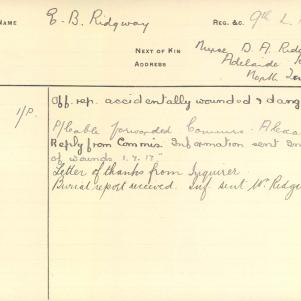 NAME E. B. Ridgway REG. &C. 9th L.
NEXT OF KIN Nurse D. A. Ridg
ADDRESS Adelaide
North Ter
1/P. Off. rep. accidentally wounded & dang
P/Cable forwarded Commrs. Alexa
Reply from Commis Information sent
of wounds 1.4.17"
Letter of thanks from Inquirer.
Burial report received. Inf sent Mr. Ridg